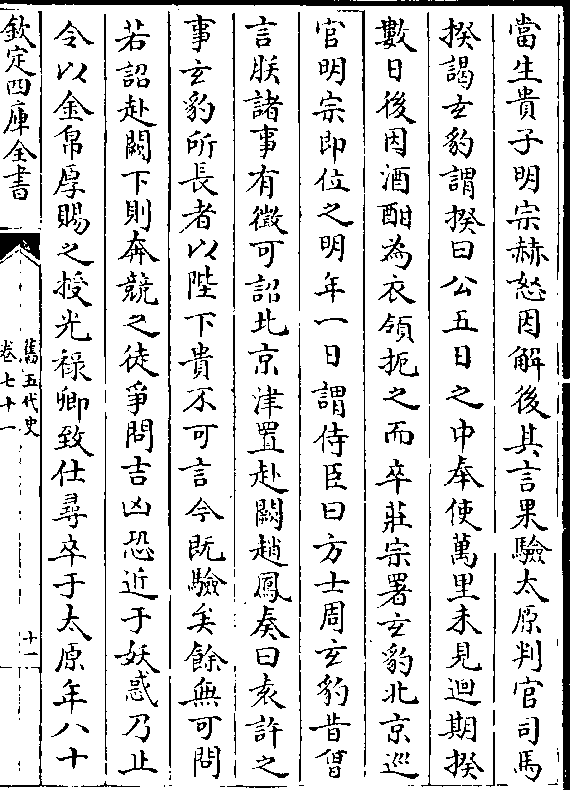 當生貴子明宗赫怒因解後其言果驗太原判官司馬
揆謁玄豹謂揆曰公五日之中奉使萬里未見迴期揆
數日後因酒酣為衣領扼之而卒莊宗署玄豹北京巡
官明宗即位之明年一日謂侍臣曰方士周玄豹昔曾
言朕諸事有徵可詔北京津置赴闕趙鳳奏曰袁許之
事玄豹所長者以陛下貴不可言今既驗矣餘無可問
若詔赴闕下則奔競之徒爭問吉凶恐近于妖惑乃止
令以金帛厚賜之授光禄卿致仕尋卒于太原年八十
欽定四庫全書
舊五代史
卷七十一
十一